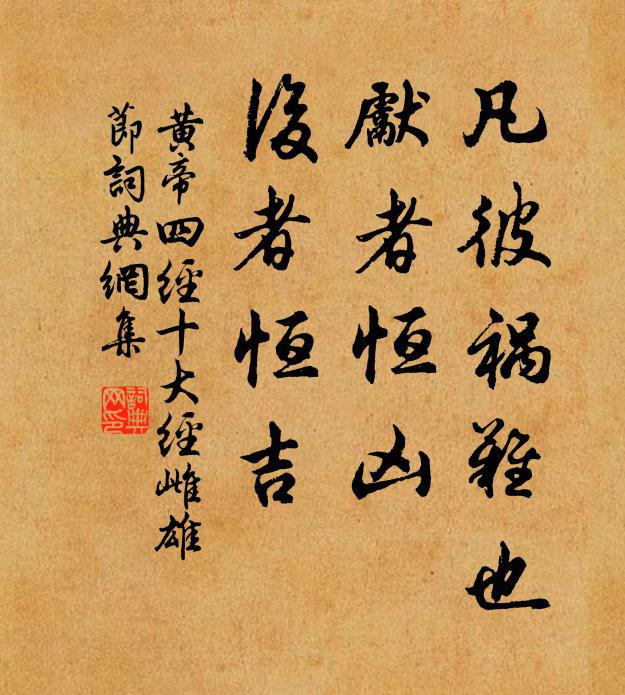 凡彼禍難也
獻者恒凶
後者恒吉
黄帝四經十大經雌雄
節詞典網集
詞典
网印